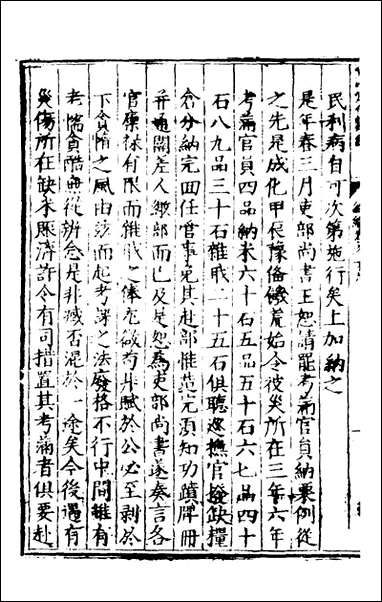 民利病自可次第施行矣上加納之
是年春三月吏部尚書王恕請罷考滿官員納粟例從
之先是成化甲辰豫俻磯荒始令彼災所在三年六年
考滿官員四品納米六十石五品五十石六七品四十
石八九品三十石雜職二十五石俱聽廵撫官撥缺糧
倉分納完囬任官事免其赴部惟葢完須知功蹟牌册
并通關差人繳部而已及是恕爲吏部尚書遂奏言各
官廩祿有限而雜職之俸尤微茍非賦於公必至剥於
下貪婪之風由茲而起考課之法廢格不行中間雖有
老懦貪酷無從辨念是非臧否混於一途矣今後遇有
災傷所在缺米賑濟許令有司措置其考滿者俱要赴